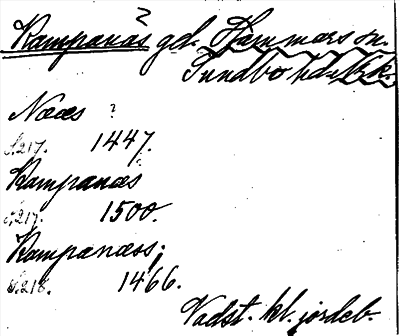 ?
Kampanäs gd. Hammars sn.
Sundbo hd. Ök.
Næs ?
S. 217. 1447.
Kampanæs
S. 217. 1500.
Kampanæss;
S. 218. 1466.
Vadst. kl. jordeb.